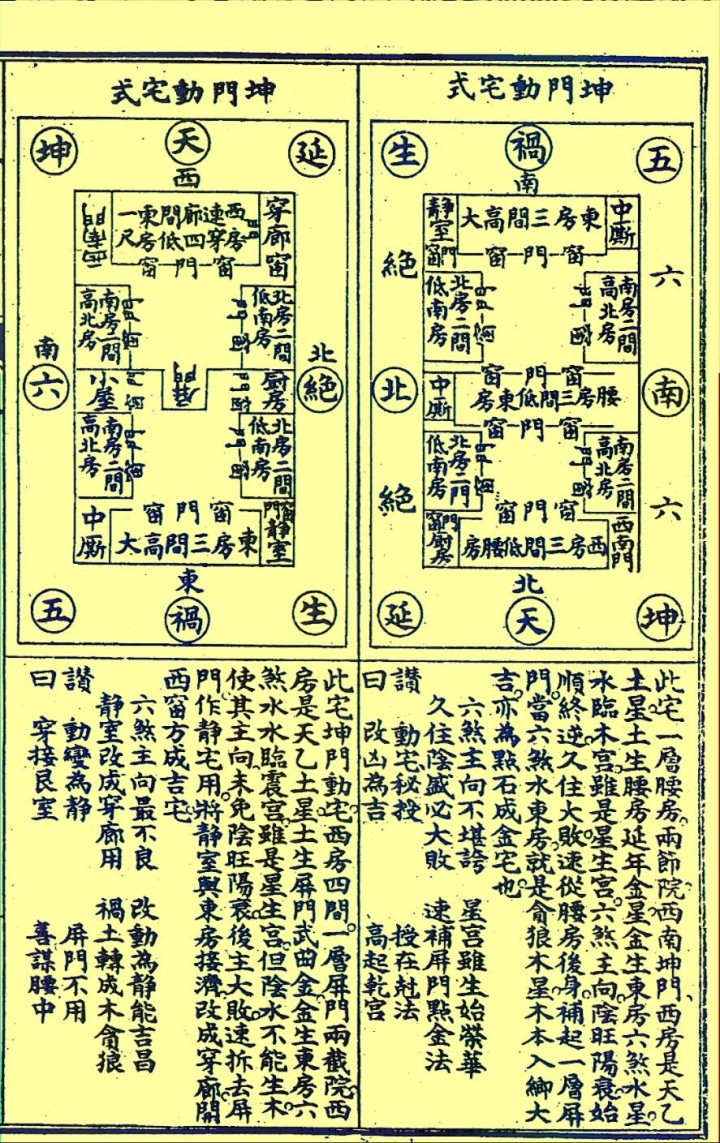 坤門動宅式
五
禍
生
南
中厠
大高間三房東
靜室
門窗
窗門窗
六
絕
南房二間
高北房
北房二間
低南房
南
北
窗門窗
中厠
房東低間三房腰
窗門窗
六
絕
南房二間
高北房
北房二門
低南房
窗門窗
西南門
房腰低間三房西
門窗
廚房
北
坤
天
延
此宅一層腰房兩節院西南坤門西房是天乙
土星土生腰房延年金星金生東房六煞水星
水臨木宮雖是星生宮六煞主向陰旺陽衰始
順終逆久住大敗速從腰房後身補起一層屏
門當六煞水東房就是貪狼木星木本入鄉大
吉亦為點石成金宅也
六煞主向不堪誇 星宮雖生始榮華
久住陰盛必大敗 速補屏門點金法
讚曰
動宅秘授 授在尅法
改凶為吉 高起乾宮
坤門動宅式
延
天
坤
西
穿廊窗
一東間廊連西
尺房低四穿房
窗門窗
北房二間
低南房
南房二間
高北房
北
絕
南
六
廚房
小屋
北房二間
低南房
南房二間
高北房
窗門窗
門窗
靜室
大高間三房東
中厠
東
生
禍
五
此宅坤門動宅西房四間一層屏門兩截院西
房是天乙土星土生屏門武曲金金生東房六
煞水水臨震宮雖是星生宮但陰水不能生木
使其主向未免陰旺陽衰後主大敗速拆去屏
門作靜宅用將靜室與東房接濟改成穿廊開
西窗方成吉宅
六煞主向最不良 改動為靜能吉昌
靜室改成穿廊用 禍土轉成木貪狼
讚曰
動變為靜 屏門不用
穿接艮室 喜謀腰中